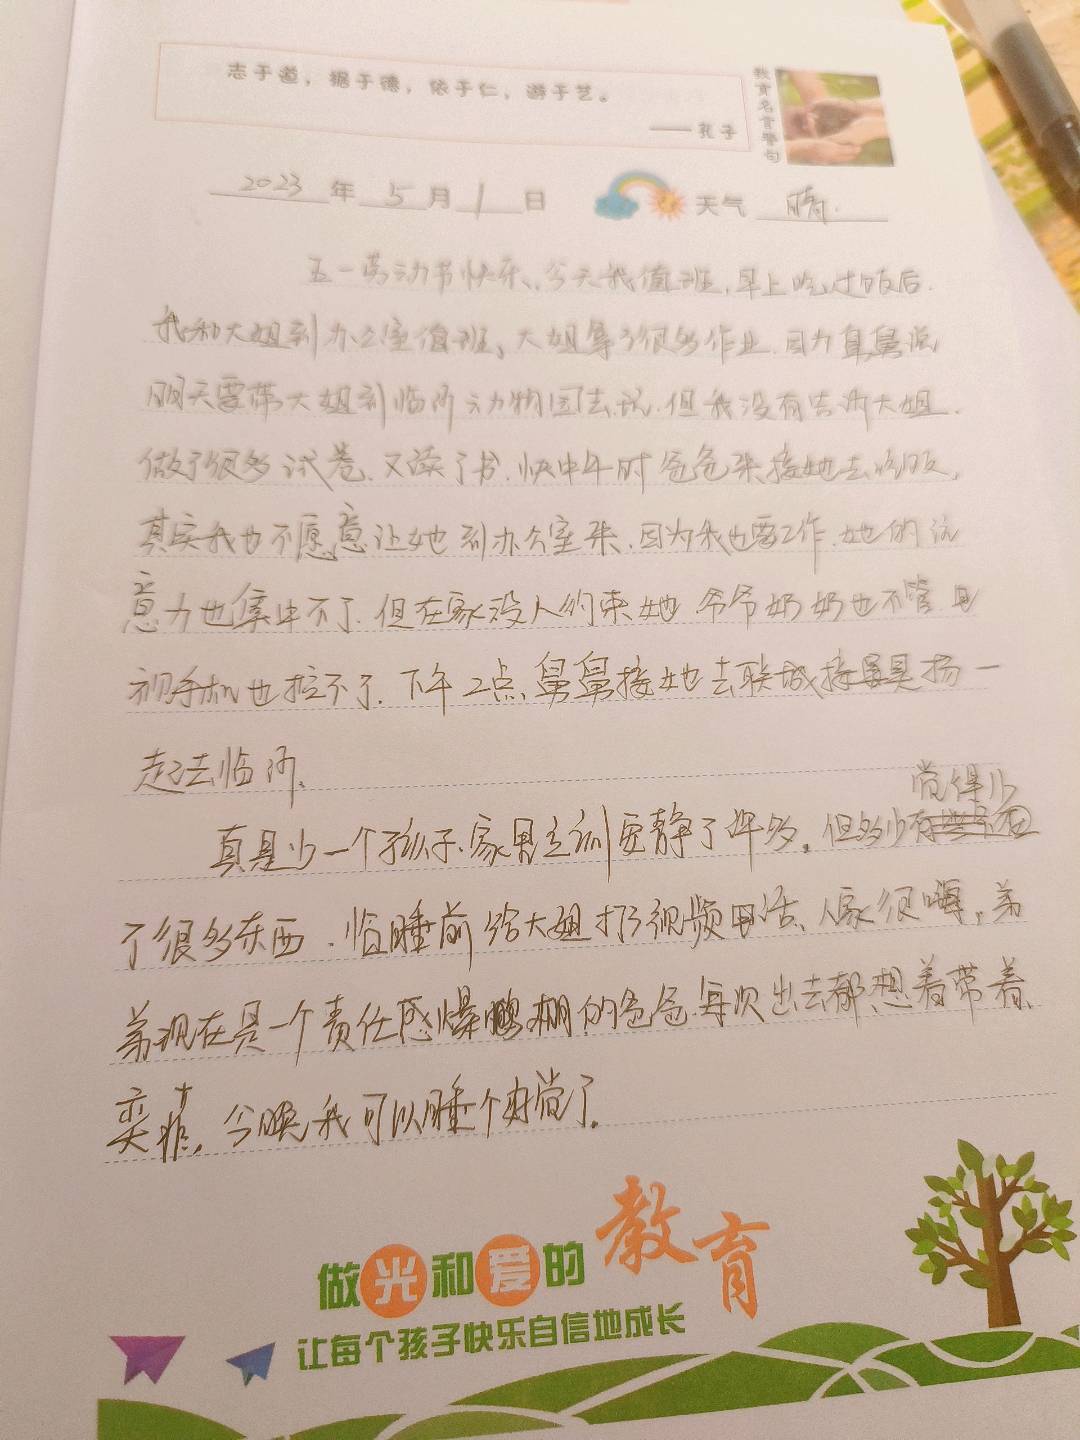 志于道，据于德，依于仁，游于艺。
——孔子
教育名言警句
2023年5月1日 天气 晴.
五一劳动节快乐，今天我值班，早上吃过饭后.
我和大姐到办公室值班，大姐拿了很多作业.因为舅舅说
明天要带大姐到临沂动物园去玩.但我没有告诉大姐.
做了很多试卷.又读了书.快中午时爸爸来接她去吃饭,
其实我也不愿意让她到办公室来.因为我也要工作.她的注
意力也集中不了.但在家没人约束她 爷爷奶奶也不管 电
视手机也控不了.下午2点,舅舅接她去联城接昊扬一
起去临沂.
真是少一个孩子.家里立刻安静了许多，但多少觉得少
了很多东西.临睡前给大姐打了视频电话、人家很嗨，弟
弟现在是一个责任感爆棚的爸爸.每次出去都想着带着
奕菲，今晚我可以睡个好觉了.
做光和爱的教育
让每个孩子快乐自信地成长